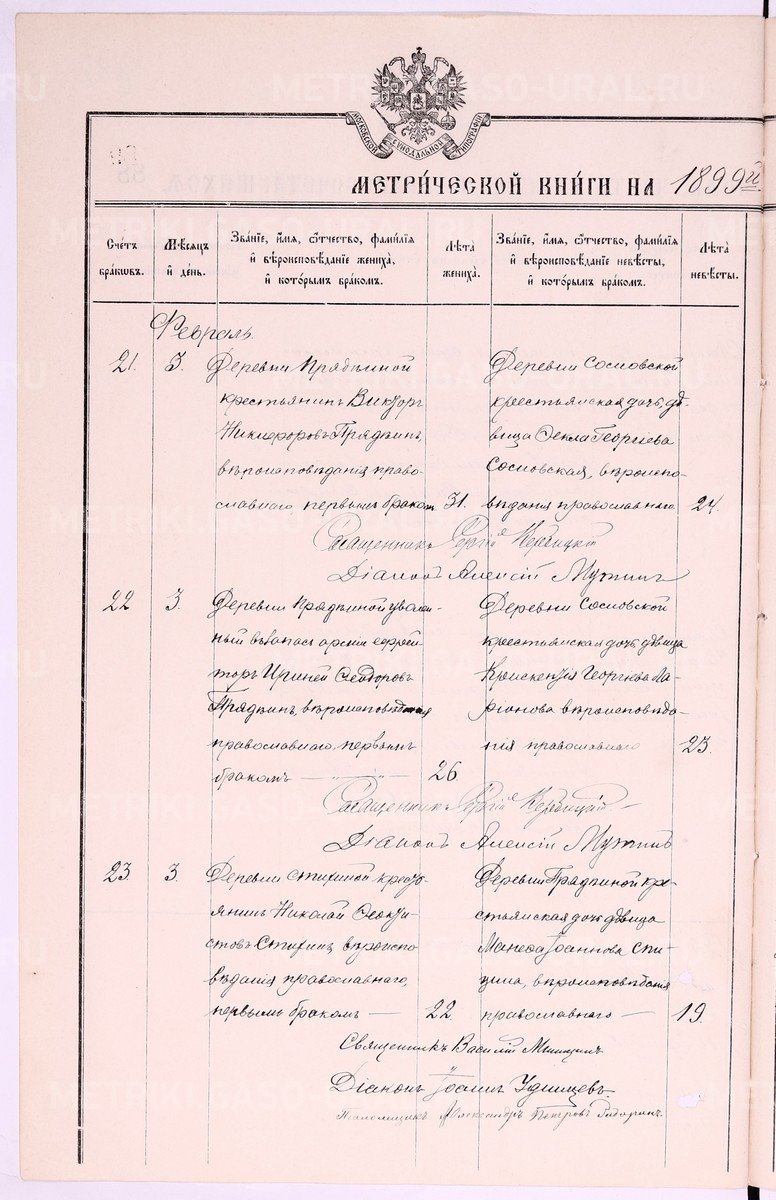 METRIKI.GASO-URAL.RU
МОСКОВСКОЙ СУНОДАЛЬНОЙ ТИПОГРАФІИ
МЕТРИ́ЧЕСКОЙ КНИ́ГИ НА 1899й.
Сче́тъ бра́кωвъ.
Мѣ́сяцъ и҆ де́нь.
Зва́нїе, и҆́мя, ѻ҆́тчество, фамилїя и҆ вѣроисповѣ́данїе жениха̀, и҆ кото́рымъ бра́комъ.
Лѣ́та жениха̀.
Зва́нїе, и҆́мя, ѻ҆́тчество, фамилїя и҆ вѣроисповѣ́данїе невѣ́сты, и҆ кото́рымъ бра́комъ.
Лѣ́та невѣ́сты.
Февраль.
21. 3. Деревни Прядѣиной
крестьянинъ Викторъ
Никифоровъ Прядѣинъ,
вѣроисповѣданія право-
славнаго первымъ бракомъ 31.
Деревни Сосновской
крестьянская дочь дѣ-
вица Ѳекла Георгіева
Сосновская, вѣроиспо-
вѣданія православнаго. 24.
Священникъ Сергій
Діаконъ Алексій
22 3. Деревни Прядѣиной уволен-
ный въ запасъ арміи ефрей-
торъ Ириней Ѳеодоровъ
Прядѣинъ, вѣроисповѣданія
православнаго, первымъ
бракомъ — „ — „ — 26.
Деревни Сосновской
крестьянская дочь дѣвица
Крискентія Георгіева Ла-
ріонова вѣроисповѣда-
нія православнаго 23.
Священникъ Сергій
Діаконъ Алексій
23 3. Деревни Спициной кресть-
янинъ Николай Ѳеокти-
стовъ Спицинъ вѣроиспо-
вѣданія православнаго,
первымъ бракомъ — 22.
Деревни Прядѣиной кре-
стьянская дочь дѣвица
Манефа Іоаннова Спи-
цина, вѣроисповѣданія
православнаго — 19.
Священникъ Василій
Діаконъ Іоаннъ Удинцевъ.
Псаломщикъ Александръ Петровъ